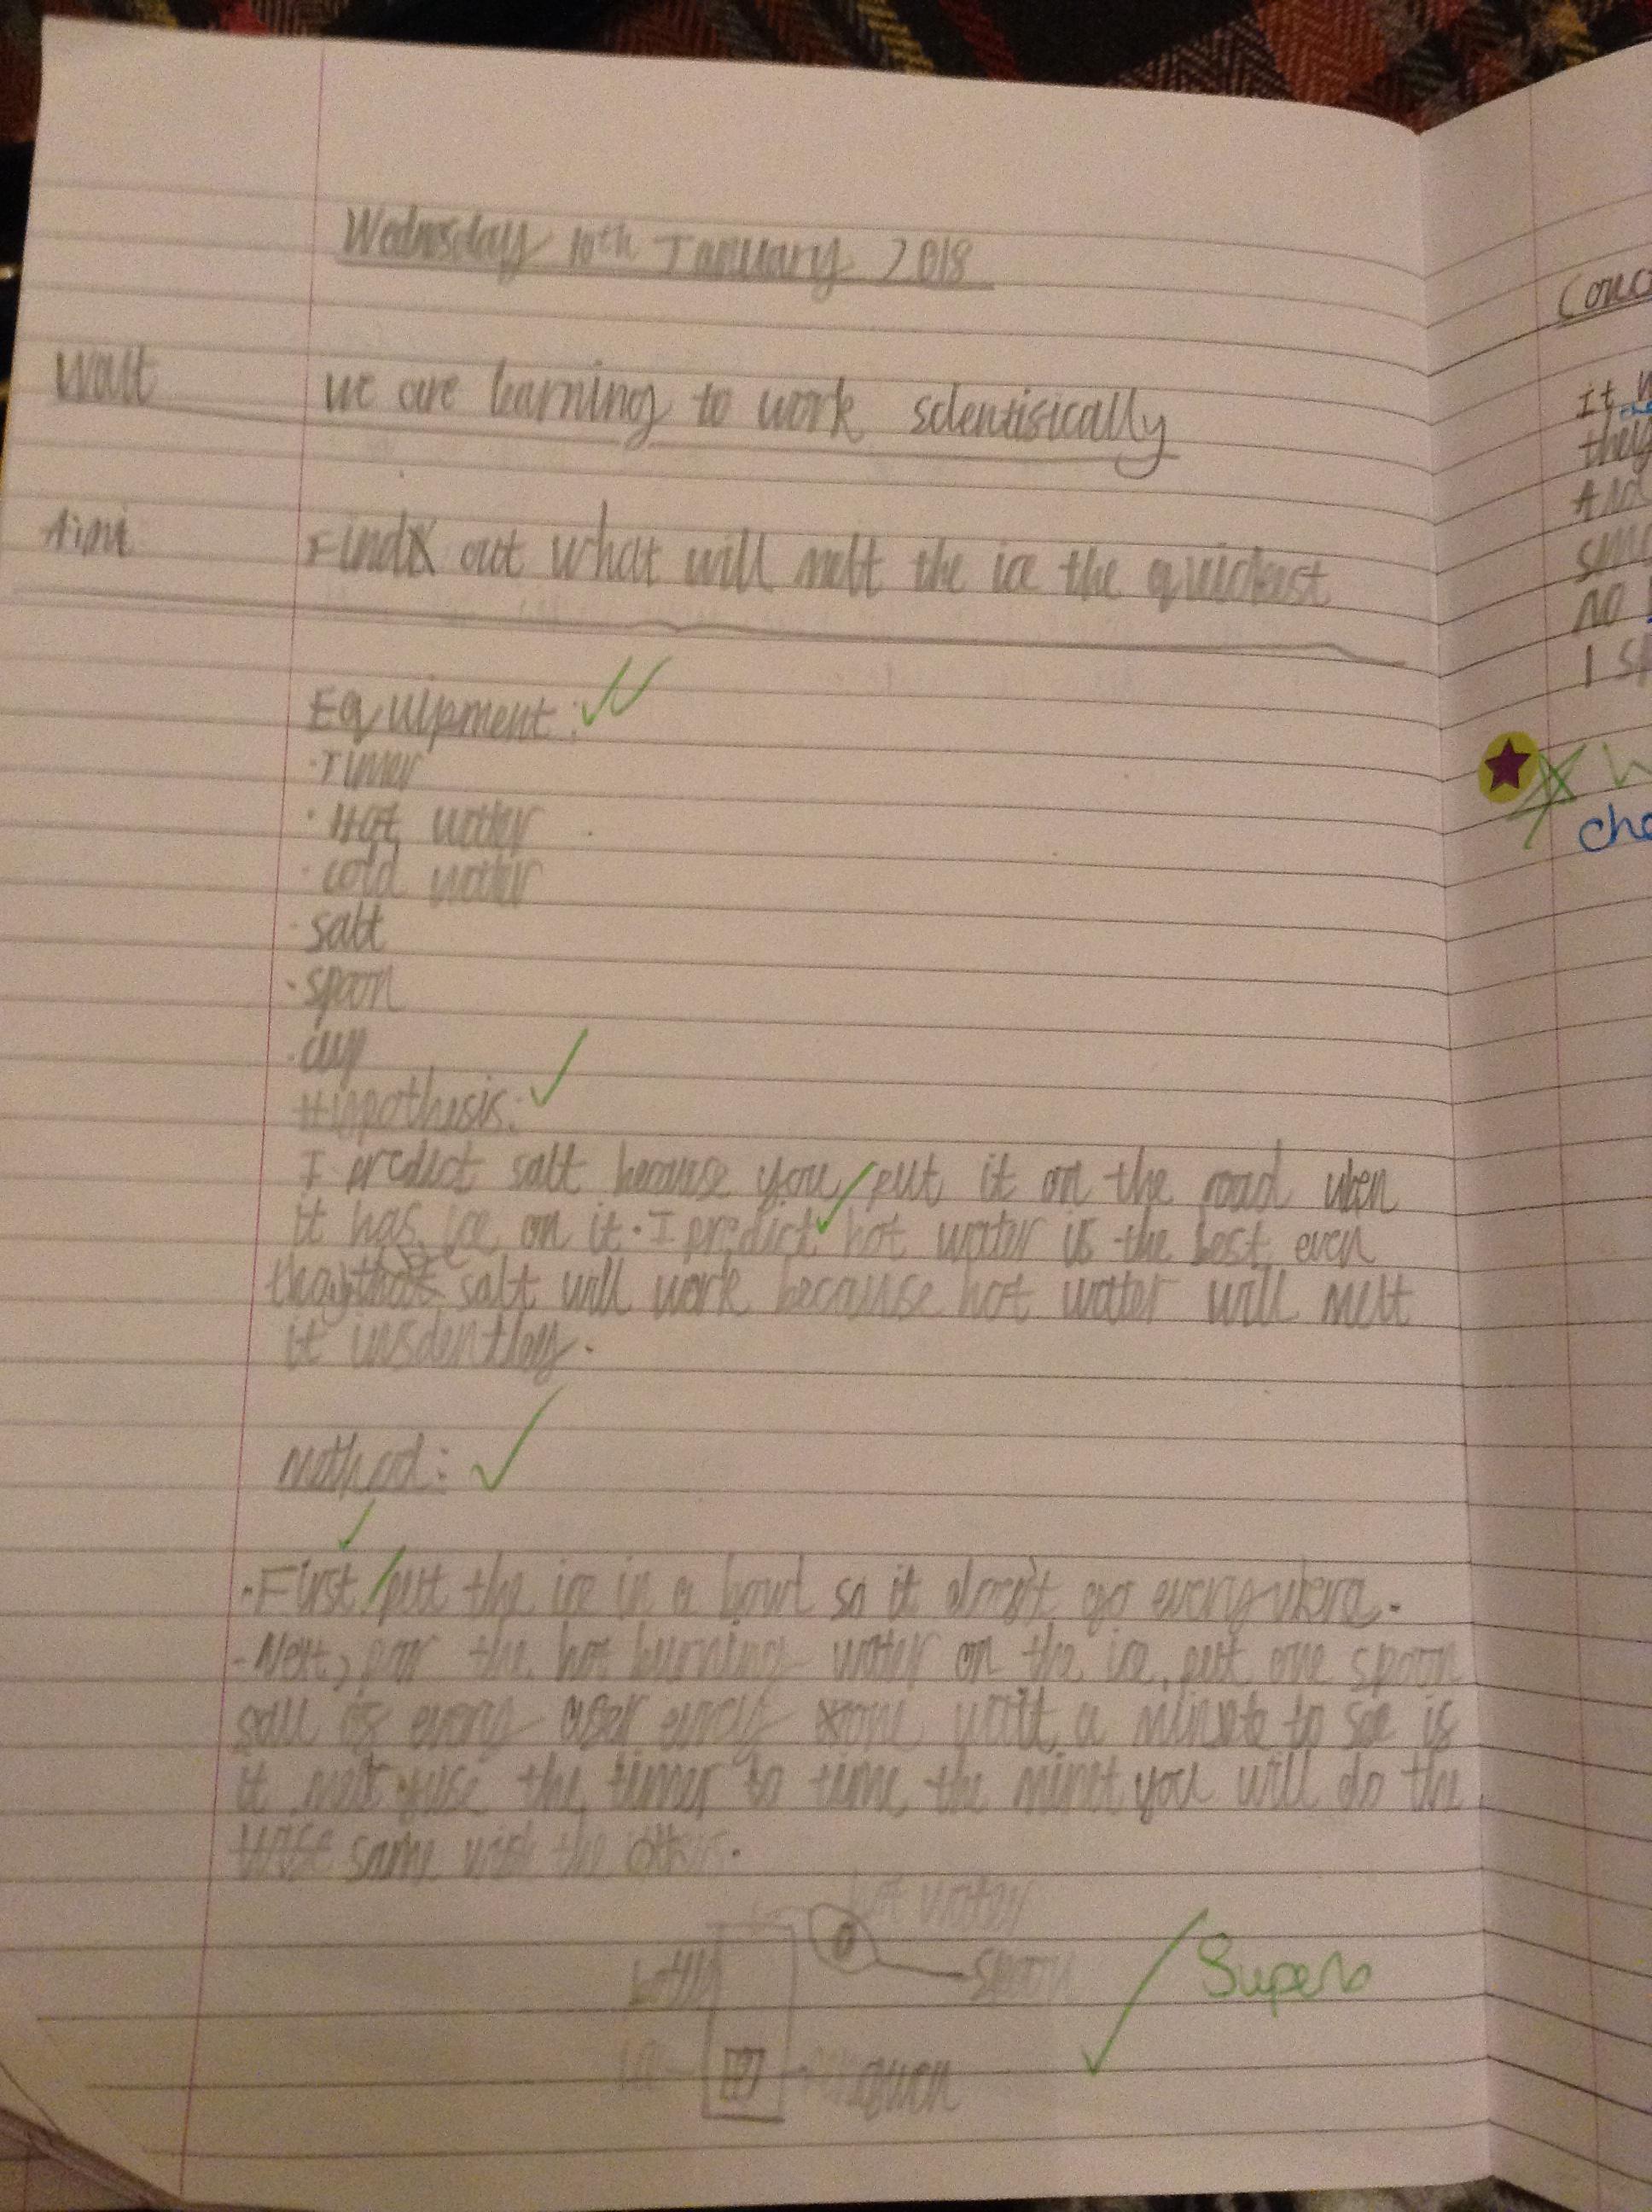 Wednesday 10th January 2018
Walt we are learning to work scientisically
Aim Find out what will melt the ice the quickest
Equipment:
· Timer
· Hot water
· cold water
· salt
· spoon
· cup
Hippothesis:
I predict salt because you put it on the road when
it has ice on it. I predict hot water is the best even
salt will work because hot water will melt
it
Method:
· First put the ice in a bowl so it doesn't go everywhere.
- Next, por the hot burning water on the ice, put one spoon
every wait a to see is
it melt use the timer to time the minet you will do the
same with the others.
hot water
spoon
Superb
Conc
It w
they
And
sm
no
I s
W
che